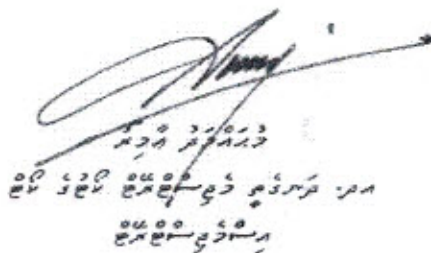 މުޙައްމަދު އާމިރު
އދ. ދަނގެތީ މެޖިސްޓްރޭޓް ކޯޓުގެ ކޯޓް
އިސްމެޖިސްޓްރޭޓް